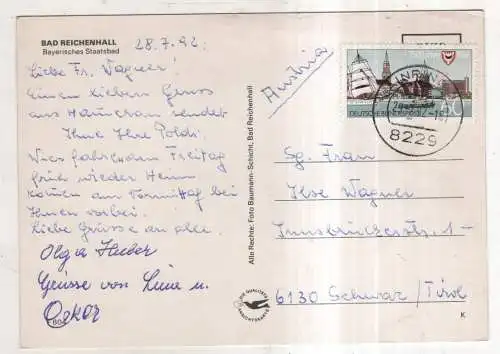 BAD REICHENHALL
Bayerisches Staatsbad
28.7.92.
Liebe Fr. Wagner!
Einen lieben Gruss
aus sendet
Ihnen Ihre Poldi.
Freitag
früh wieder Heim
kommen am Vormittag bei
Ihnen vorbei.
Liebe Grüsse an alle.
Olga Huber
Grüsse von u.
Oskar
Alle Rechte: Foto Baumann-Schicht, Bad Reichenhall
Austria
DEUTSCHE BUNDESPOST
8229
Sg. Frau
Ilse Wagner
Innsbruckerstr. 1-
6130 Schwaz/Tirol
K